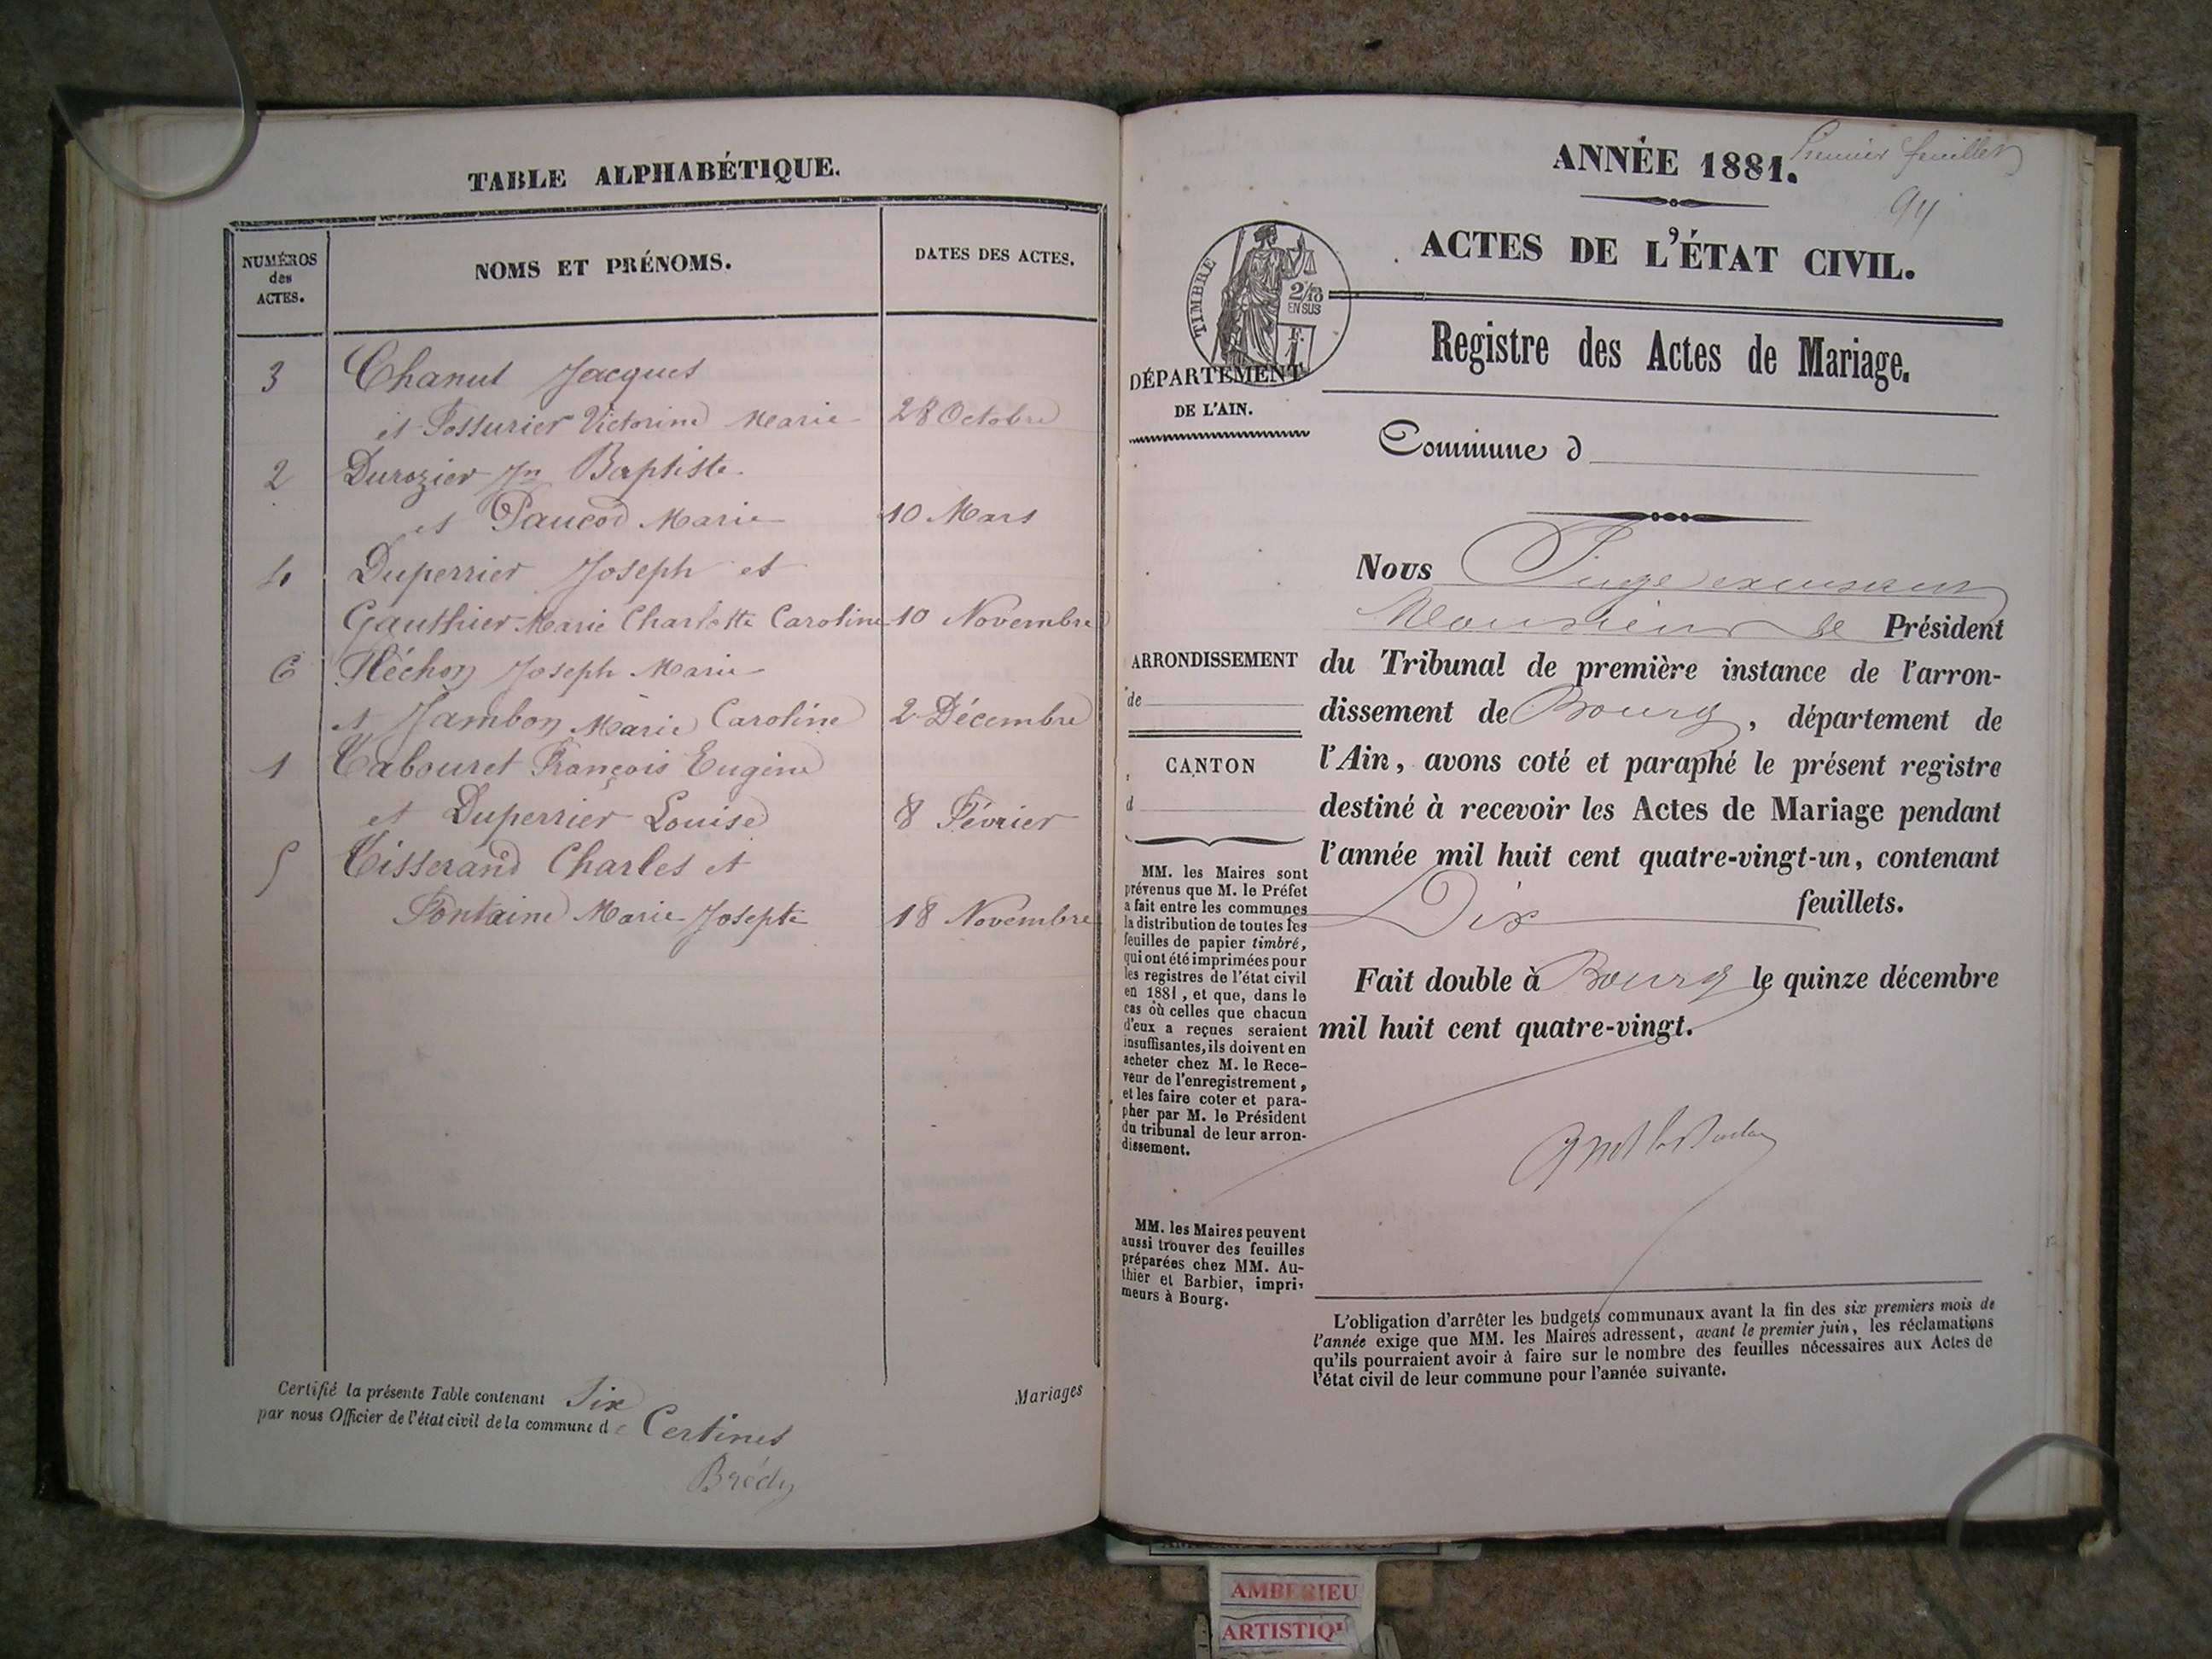 TABLE ALPHABÉTIQUE.
NUMÉROS des ACTES.
NOMS ET PRÉNOMS.
DATES DES ACTES.
3 Chanut Jacques
et Fossurier Victorine Marie 28 Octobre
2 Durozier Jn Baptiste
et Paucod Marie 10 Mars
4 Duperrier Joseph et
Gauthier Marie Charlotte Caroline 10 Novembre
6 Fléchon Joseph Marie
et Jambon Marie Caroline 2 Décembre
1 Tabouret François Eugène
et Duperrier Louise 8 Février
5 Tisserand Charles et
Fontaine Marie Josepte 18 Novembre
Certifié la présente Table contenant Six Mariages
par nous Officier de l'état civil de la commune de Certines
Brédy
Premier feuillet
ANNÉE 1881.
ACTES DE L'ÉTAT CIVIL.
TIMBRE
2/10
EN SUS
F.
1
Registre des Actes de Mariage.
DÉPARTEMENT
DE L'AIN.
Commune d
Nous Juge
Monsieur le Président
ARRONDISSEMENT
de
CANTON
d
du Tribunal de première instance de l'arron-
dissement de Bourg, département de
l'Ain, avons coté et paraphé le présent registre
destiné à recevoir les Actes de Mariage pendant
l'année mil huit cent quatre-vingt-un, contenant
Dix feuillets.
Fait double à Bourg le quinze décembre
mil huit cent quatre-vingt.
MM. les Maires sont
prévenus que M. le Préfet
a fait entre les communes
la distribution de toutes les
feuilles de papier timbré,
qui ont été imprimées pour
les registres de l'état civil
en 1881, et que, dans le
cas où celles que chacun
d'eux a reçues seraient
insuffisantes, ils doivent en
acheter chez M. le Rece-
veur de l'enregistrement,
et les faire coter et para-
pher par M. le Président
du tribunal de leur arron-
dissement.
MM. les Maires peuvent
aussi trouver des feuilles
préparées chez MM. Au-
thier et Barbier, impri-
meurs à Bourg.
L'obligation d'arrêter les budgets communaux avant la fin des six premiers mois de
l'année exige que MM. les Maires adressent, avant le premier juin, les réclamations
qu'ils pourraient avoir à faire sur le nombre des feuilles nécessaires aux Actes de
l'état civil de leur commune pour l'année suivante.
AMBERIEU
ARTISTIQ